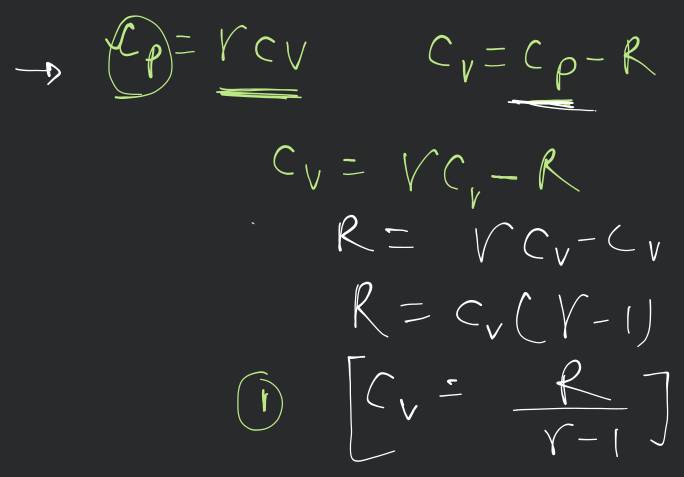 → Cp = γCv    Cv = Cp - R
Cv = γCv - R
R = γCv - Cv
R = Cv(γ-1)
① [Cv = R/(γ-1)]